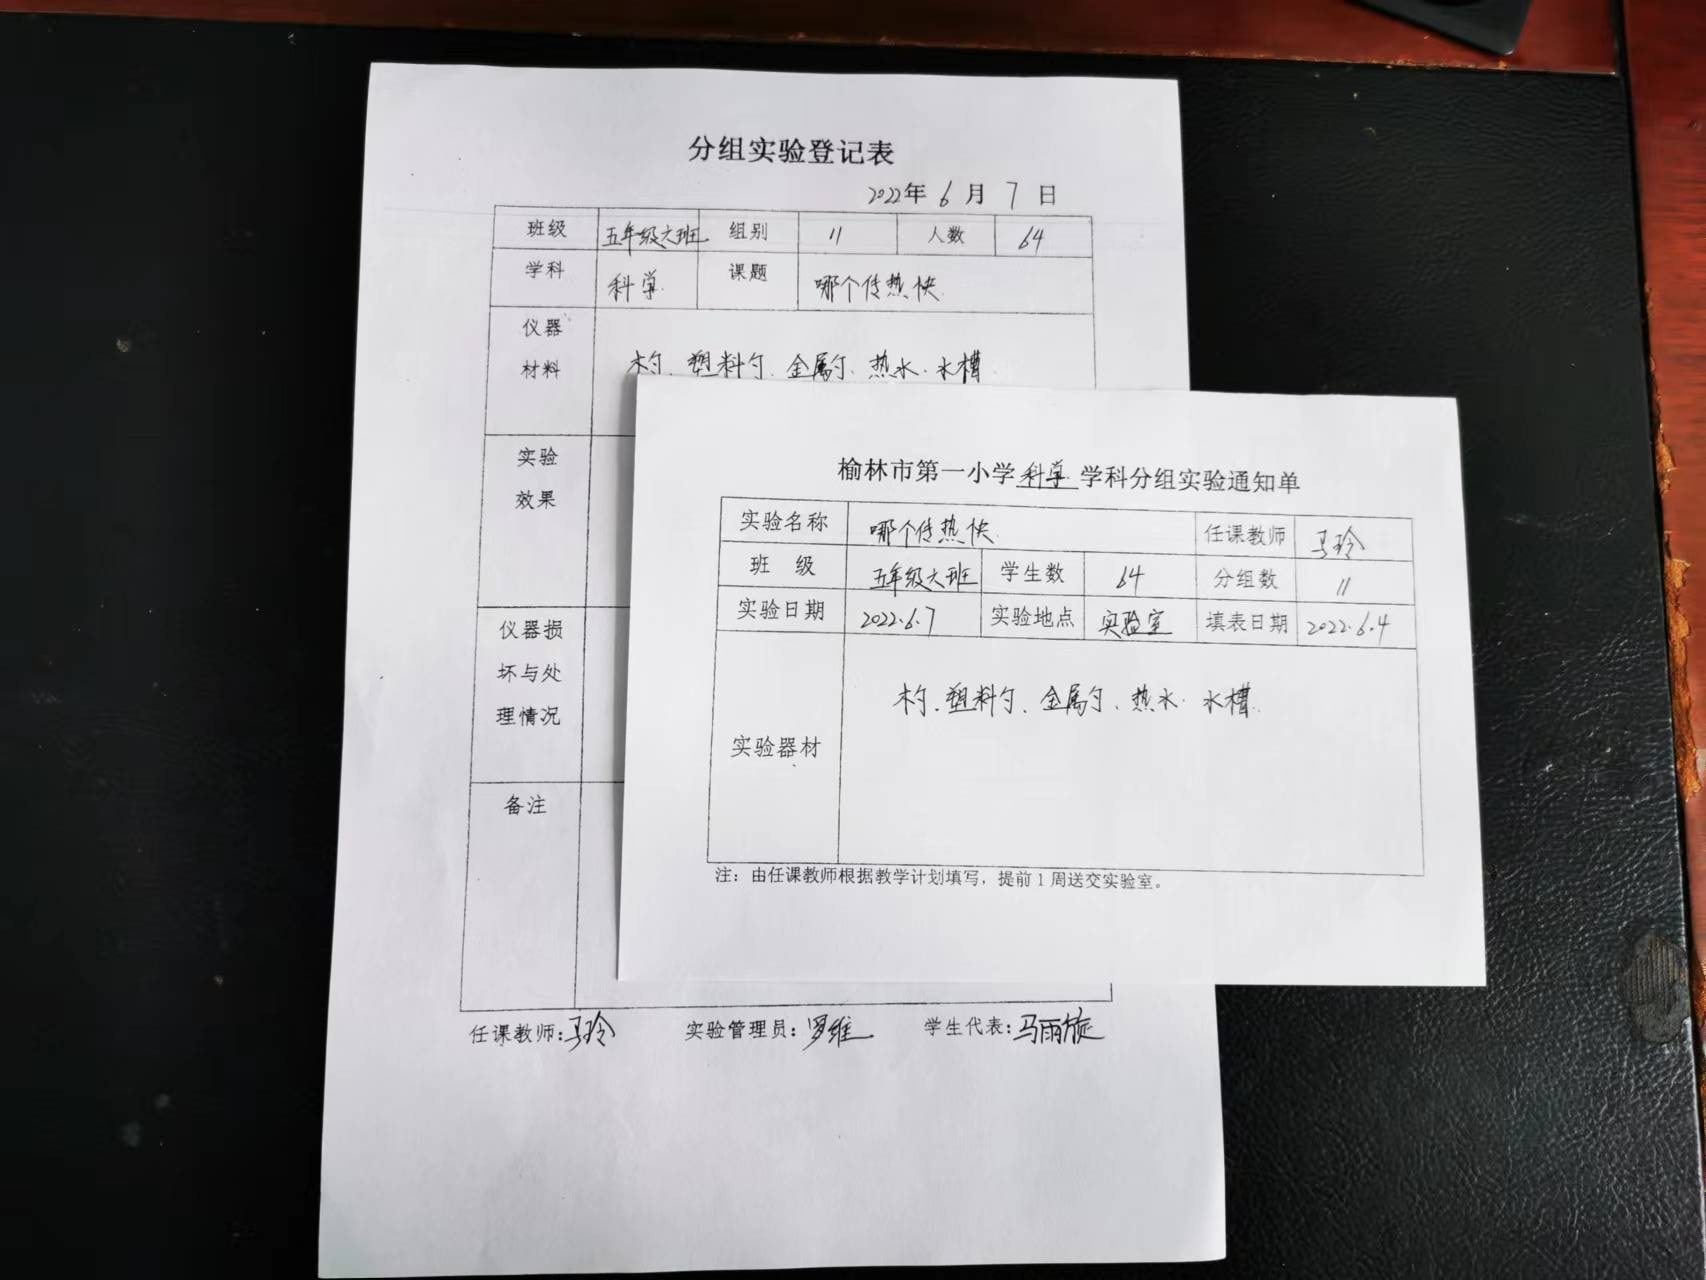 分组实验登记表
2022年 6 月 7 日
班级 五年级六班 组别 11 人数 64
学科 科学 课题 哪个传热快
仪器
材料 木勺、塑料勺、金属勺、热水、水槽
实验
效果
仪器损
坏与处
理情况
备注
任课教师:马玲 实验管理员:罗维 学生代表:马雨旋
榆林市第一小学 科学 学科分组实验通知单
实验名称 哪个传热快 任课教师 马玲
班 级 五年级六班 学生数 64 分组数 11
实验日期 2022.6.7 实验地点 实验室 填表日期 2022.6.4
实验器材 木勺、塑料勺、金属勺、热水、水槽
注：由任课教师根据教学计划填写，提前1周送交实验室。